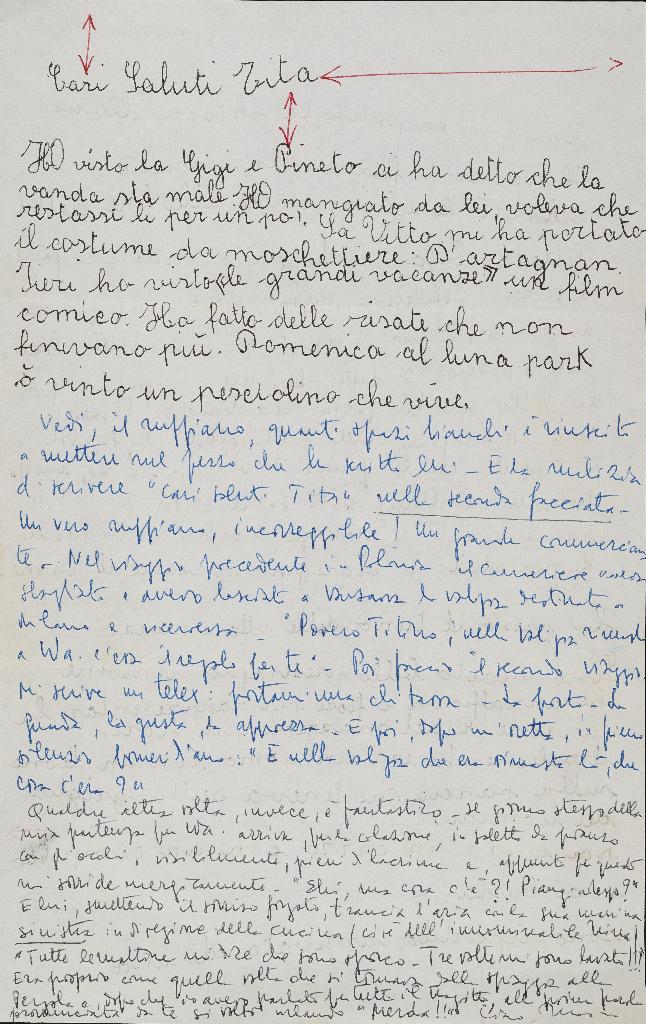 Cari Saluti Tita
HO visto la Gigi e Pineto ci ha detto che la
vanda sta male. HO mangiato da lei, voleva che
restassi li per un po'. La Vitto mi ha portato
il costume da moschettiere: D'artagnan.
Ieri ho visto «le grandi vacanze» un film
comico. Ha fatto delle risate che non
finivano più. Domenica al luna park
ò vinto un pesciolino che vive.
Vedi, il ruffiano, quanti spazi bianchi è riuscito
a mettere nel pezzo che ha scritto lui - E la malizia
di scrivere "cari saluti Tita" nella seconda facciata -
Un vero ruffiano, incorreggibile! Un grande commercian
te - Nel viaggio precedente in Polonia il cameriere aveva
sbagliato e avevo lasciato a Varsavia la valigia destinata a
Milano e viceversa - "Povero Titino, nella valigia rimasta
a Wa. c'era il regalo per te" - Poi faccio il secondo viaggio.
Mi scrive un telex: portami una cli - La porto - La
guarda, la gusta, la apprezza - E poi, dopo un'oretta, in pieno
silenzio pomeridiano: "E nella valigia che era rimasta là, che
cosa c'era?"
Qualche altra volta, invece, è fantastico - Lo giorno stesso della
mia partenza per Wa. arriva, per la colazione, in salotto da pranzo
con gli occhi, visibilmente, pieni di lacrime e, appunto per questo
mi sorride energicamente - "Ehi, ma cosa c'è?! Piangi adesso?"
E lui, smettendo il sorriso forzato, trancia l'aria con la sua manina
sinistra in direzione della cucina (cioè dell'innominabile Nina)
"Tutte le mattine mi dice che sono sporco. Tre volte mi sono lavato!!!"
Era proprio come quella volta che si tornava dalla spiaggia alla
Pergola e dopo che io avevo parlato per tutto il tragitto, alla prima parola
pronunciata da te si voltò urlando "Merda!!!" Ciao